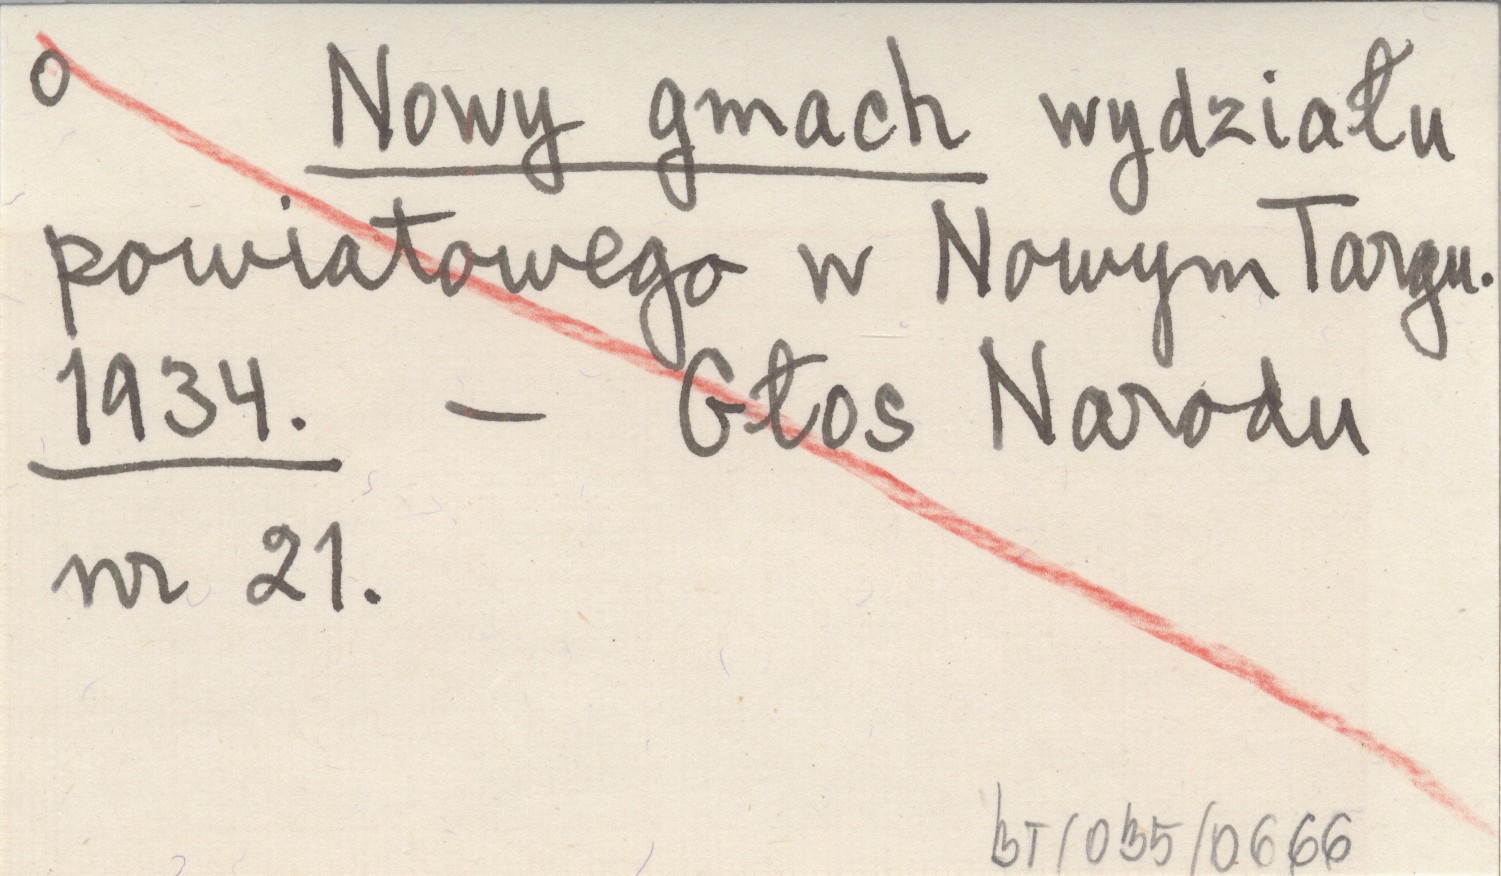 o Nowy gmach wydziału
powiatowego w Nowym Targu.
1934. — Głos Narodu
nr 21.
BT/035/0666